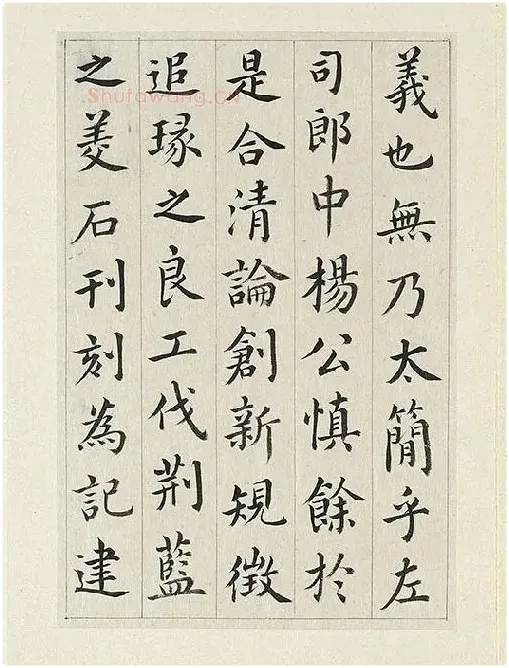 義也無乃太簡乎左
司郎中楊公慎餘於
是合清論創新規徵
追琢之良工伐荆藍
之美石刊刻為記建
Shufawang.CN